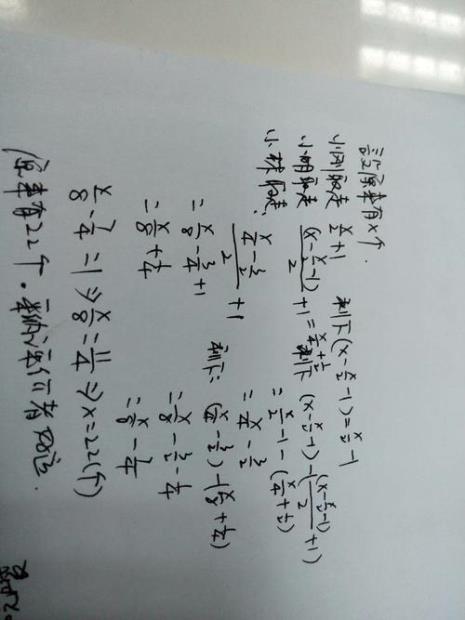 设原来有x个
小刚取走 x/2+1 剩下(x-x/2-1)=x/2-1
小明取走 (x-x/2-1)/2+1=x/4+1/2 剩下 (x-x/2-1)-((x-x/2-1)/2+1)
=x/2-1-(x/4+1/2)
=x/4-3/2
小林取走: (x/4-3/2)/2+1 剩下: (x/4-3/2)-(x/8+1/4)
=x/8-3/4+1 =x/4-3/2-x/8-1/4
=x/8+1/4 =x/8-7/4
x/8-7/4=1⇒x/8=11/4⇒x=22(个)
原来有22个.